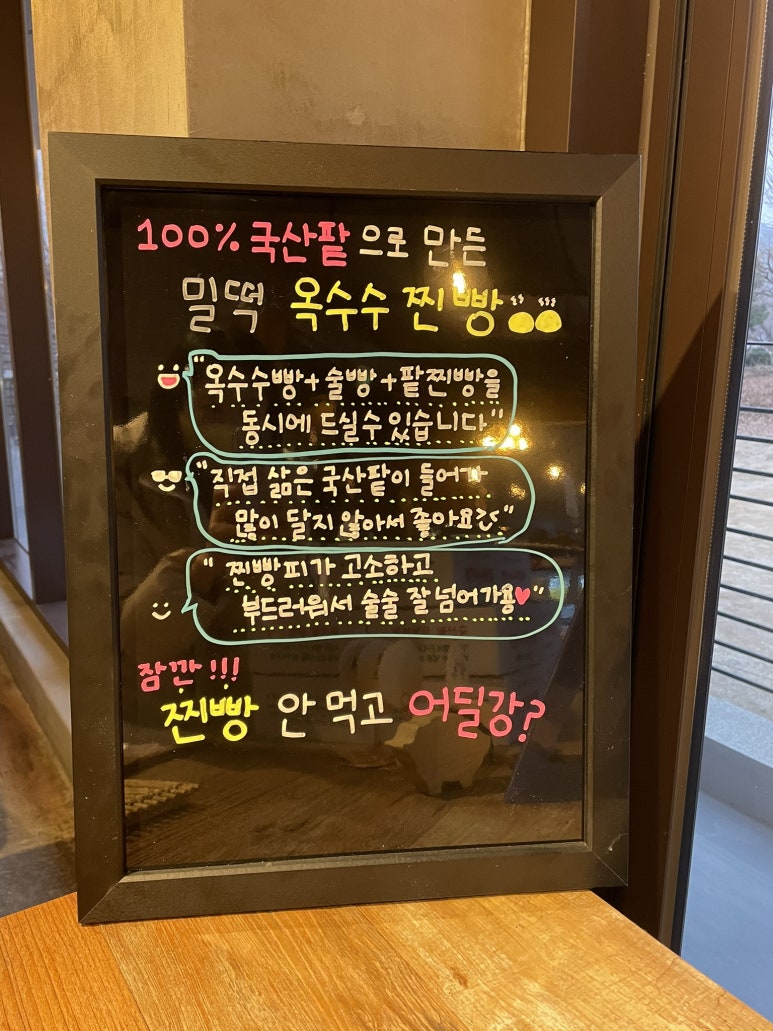 100% 국산팥으로 만든
밀떡 옥수수 찐빵
"옥수수빵+술빵+팥찐빵을
동시에 드실수 있습니다"
"직접 삶은 국산팥이 들어가
많이 달지 않아서 좋아요"
"찐빵피가 고소하고
부드러워서 술술 잘 넘어가용♥"
잠깐!!!
찐빵 안 먹고 어딜강?